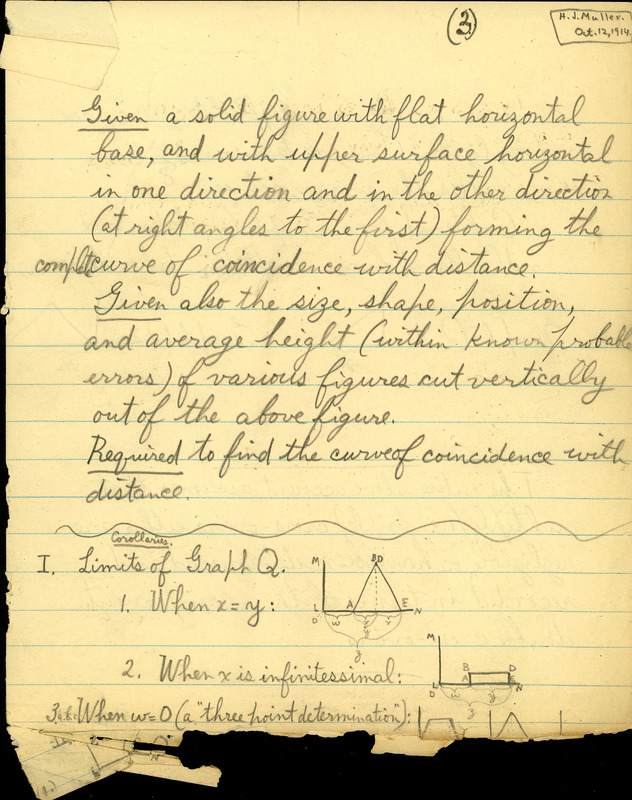 (3)
H.J. Muller.
Oct. 12, 1914.
Given a solid figure with flat horizontal
base, and with upper surface horizontal
in one direction and in the other direction
(at right angles to the first) forming the
complete curve of coincidence with distance.
Given also the size, shape, position,
and average height (within known probable
errors) of various figures cut vertically
out of the above figure.
Required to find the curve of coincidence with
distance.
Corollaries.
I. Limits of Graph Q.
M BD
L A E N
O w x y
z
1. When x = y:
M
B D
L A E N
O w y
z
2. When x is infinitessimal:
3. When w=0 (a "three point determination"):
(1.)